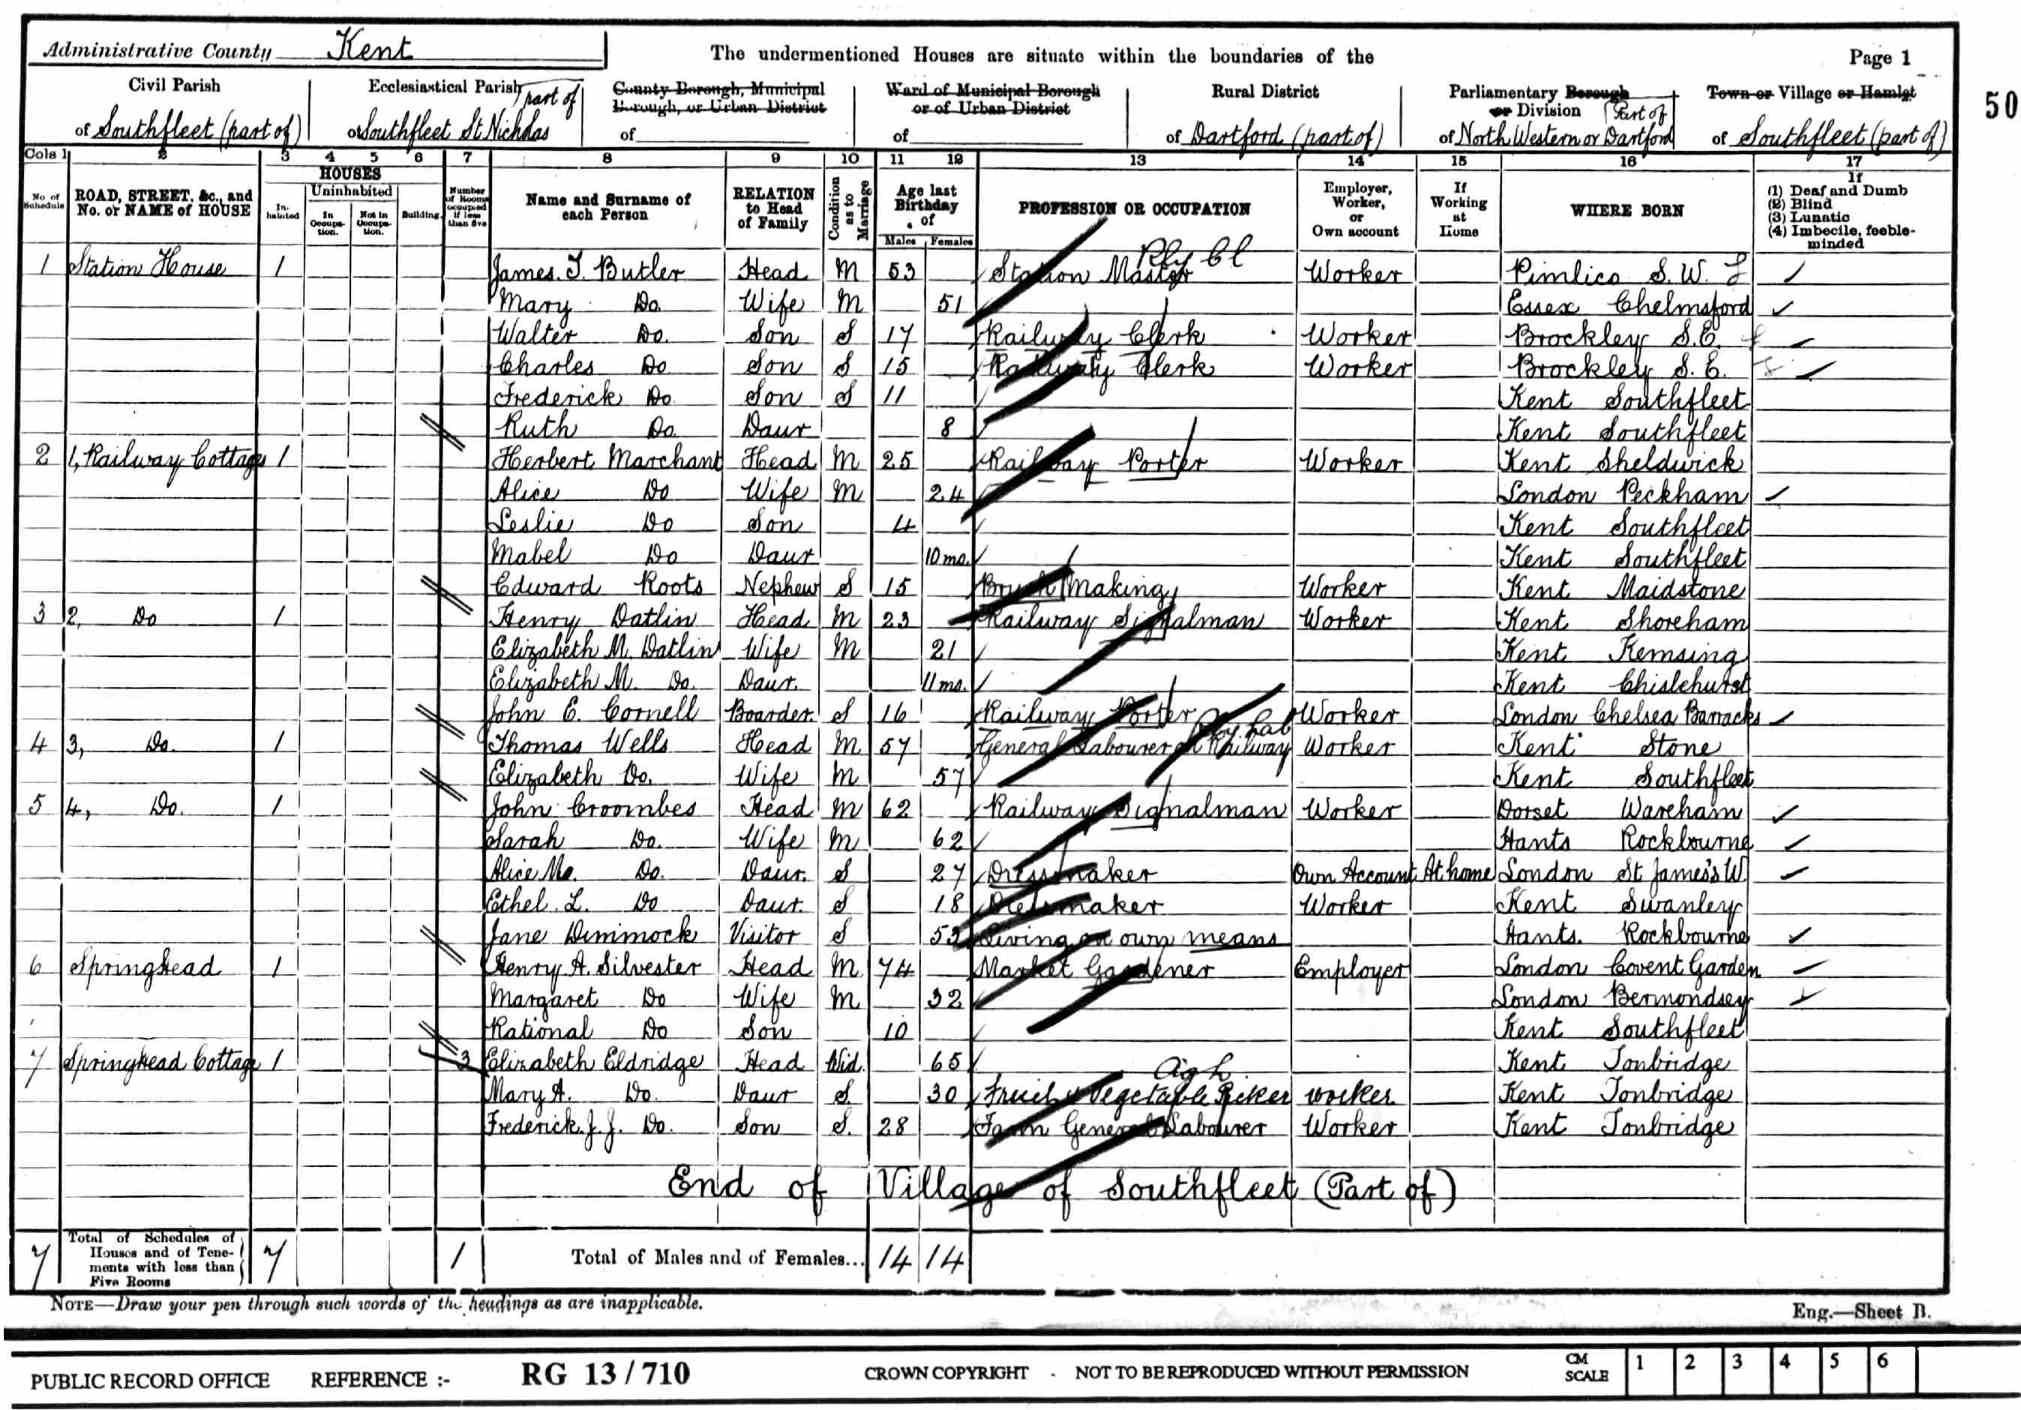 Administrative County Kent The undermentioned Houses are situate within the boundaries of the Page 1
50
Civil Parish Ecclesiastical Parish part of County Borough, Municipal Borough, or Urban District Ward of Municipal Borough or of Urban District Rural District Parliamentary Borough or Division Part of Town or Village or Hamlet
of Southfleet (part of) of Southfleet St Nicholas of of of Dartford (part of) of North Western or Dartford of Southfleet (part of)
Cols 1 2 3 4 5 6 7 8 9 10 11 12 13 14 15 16 17
No. of Schedule ROAD, STREET, &c., and No. or NAME of HOUSE HOUSES Inhabited Uninhabited In Occupation. Not in Occupation. Building. Number of Rooms occupied if less than five Name and Surname of each Person RELATION to Head of Family Condition as to Marriage Age last Birthday of Males Females PROFESSION OR OCCUPATION Employer, Worker, or Own account If Working at Home WHERE BORN If (1) Deaf and Dumb (2) Blind (3) Lunatic (4) Imbecile, feeble-minded
Rly Cl
1 Station House 1 James. T. Butler Head M 53 Station Master Worker Pimlico S.W.
Mary Do. Wife M 51 Essex Chelmsford
Walter Do. Son S 17 Railway Clerk Worker Brockley S.E.
Charles Do Son S 15 Railway Clerk Worker Brockley S.E.
Frederick Do. Son S 11 Kent Southfleet
Ruth Do. Daur 8 Kent Southfleet
2 1, Railway Cottage 1 Herbert Marchant Head M 25 Railway Porter Worker Kent Sheldwick
Alice Do Wife M 24 London Peckham
Leslie Do Son 4 Kent Southfleet
Mabel Do Daur 10 mo. Kent Southfleet
Edward Roots Nephew S 15 Brush Making Worker Kent Maidstone
3 2, Do 1 Henry Datlin Head M 23 Railway Signalman Worker Kent Shoreham
Elizabeth M. Datlin Wife M 21 Kent Kemsing
Elizabeth M. Do. Daur. 11 mo. Kent Chislehurst
John E. Cornell Boarder. S 16 Railway Porter Worker London Chelsea Barracks
Ry. Lab
4 3, Do. 1 Thomas Wells Head M 57 General Labourer on Railway Worker Kent Stone
Elizabeth Do. Wife M 57 Kent Southfleet
5 4, Do. 1 John Croombes Head M 62 Railway Signalman Worker Dorset Wareham
Sarah Do. Wife M 62 Hants Rockbourne
Alice Do. Daur. S 27 Dressmaker Own Account At home London St James's W.
Ethel. L. Do Daur. S 18 Dressmaker Worker Kent Swanley
Jane Dimmock Visitor S 52 Living on own means Hants. Rockbourne
6 Springhead 1 Henry A. Silvester Head M 74 Market Gardener Employer London Covent Garden
Margaret Do Wife M 32 London Bermondsey
Rational Do Son 10 Kent Southfleet
7 Springhead Cottage 1 3 Elizabeth Eldridge Head Wid. 65 Kent Tonbridge
Agh.
Mary A. Do. Daur S 30 Fruit & Vegetable Picker worker Kent Tonbridge
Frederick. J. J. Do. Son S. 28 Farm General Labourer Worker Kent Tonbridge
End of Village of Southfleet (Part of)
7 Total of Schedules of Houses and of Tenements with less than Five Rooms 7 1 Total of Males and of Females... 14 14
NOTE—Draw your pen through such words of the headings as are inapplicable. Eng.—Sheet B.
PUBLIC RECORD OFFICE REFERENCE :- RG 13 / 710 CROWN COPYRIGHT - NOT TO BE REPRODUCED WITHOUT PERMISSION CM SCALE 1 2 3 4 5 6